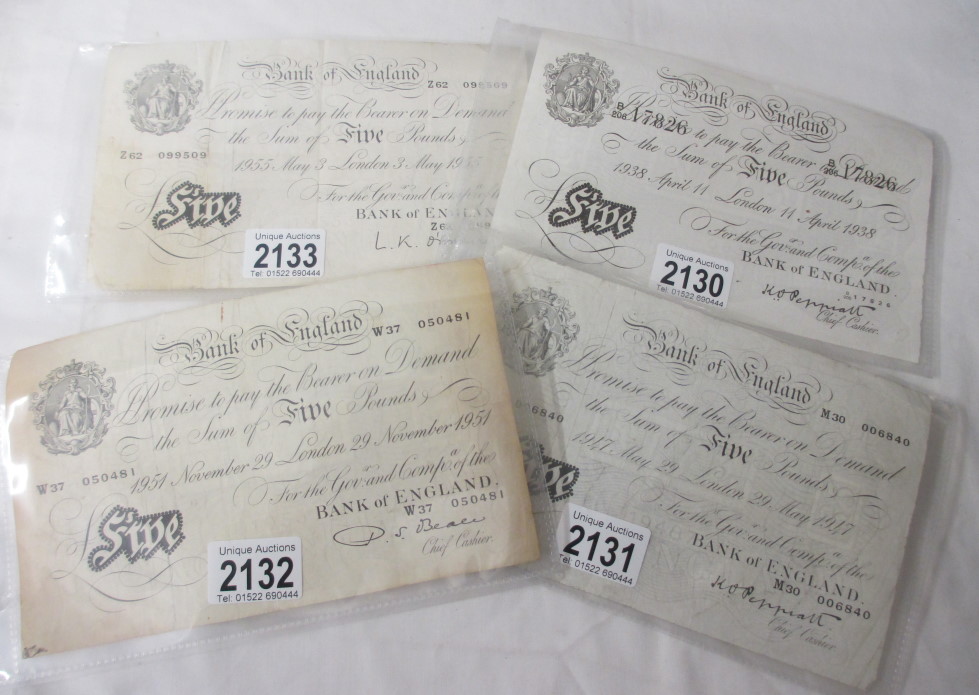 Bank of England
Z62 099509
Promise to pay the Bearer on Demand
the Sum of Five Pounds
Z62 099509
1955 May 3 London 3 May 1955
For the Govr. and Compa. of the
Five
BANK of ENGLAN
Z62
L.K.
Unique Auctions
2133
Tel: 01522 690444
Bank of England
B
206 17826
to pay the Bearer
B
206 17826
the Sum of Five Pounds
1938 April 11 London 11 April 1938
For the Govr. and Compa. of the
Five
BANK of ENGLAND.
17826
K O Peppiatt
Chief Cashier.
Unique Auctions
2130
Tel: 01522 690444
Bank of England
W37 050481
Promise to pay the Bearer on Demand
the Sum of Five Pounds
W37 050481
1951 November 29 London 29 November 1951
For the Govr. and Compa. of the
Five
BANK of ENGLAND.
W37 050481
P. S. Beale
Chief Cashier.
Unique Auctions
2132
Tel: 01522 690444
Bank of England
M30 006840
Promise to pay the Bearer on Demand
the Sum of Five Pounds
006840
1947 May 29 London 29 May 1947
For the Govr. and Compa. of the
Five
BANK of ENGLAND.
M30 006840
K O Peppiatt
Chief Cashier.
Unique Auctions
2131
Tel: 01522 690444